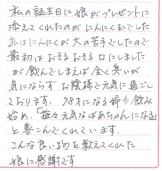 私の誕生日に娘がプレゼントに
添えてくれたのがにんにくまでした
私はにんにくが大の苦手でしたので
最初はおそるおそる口にしました
が飲んでしまえば全く臭いが
気にならずお陰様で元気に過ごし
ております。78才になる母も飲み
始め、「益々元気なばあちゃんになる」
と喜こんでくれています。
こんな良い物を教えてくれた
娘に感謝です